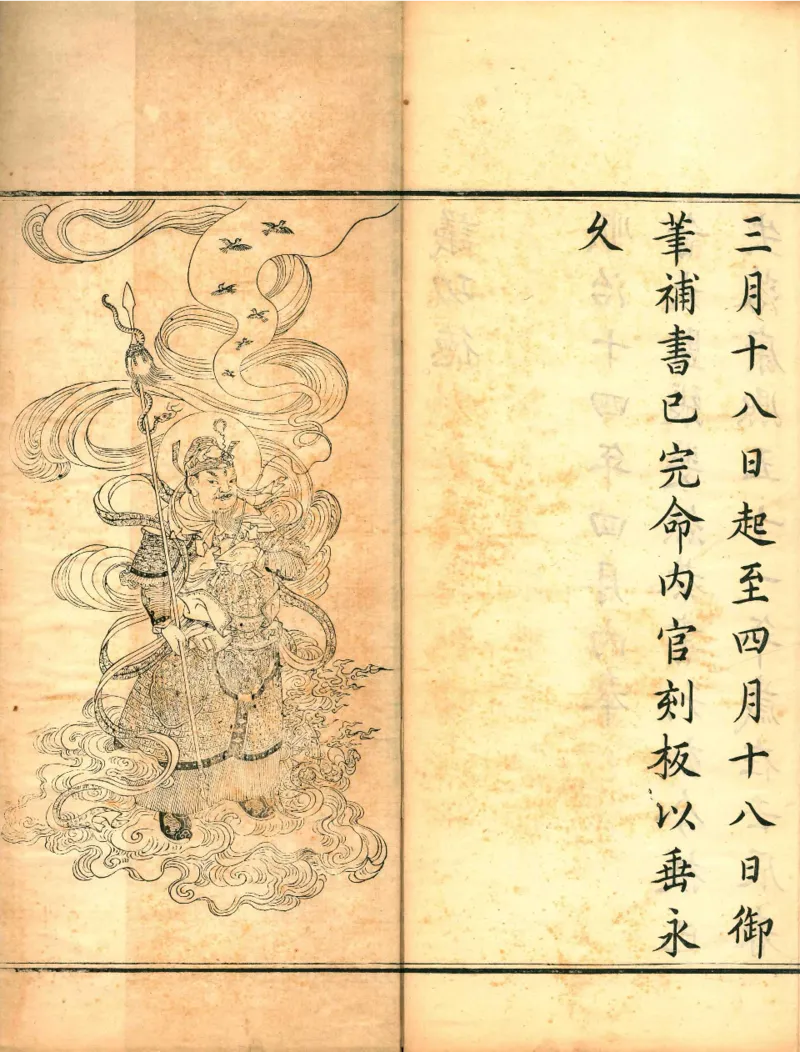 三月十八日起至四月十八日御
筆補書已完命内官刻板以垂永
久